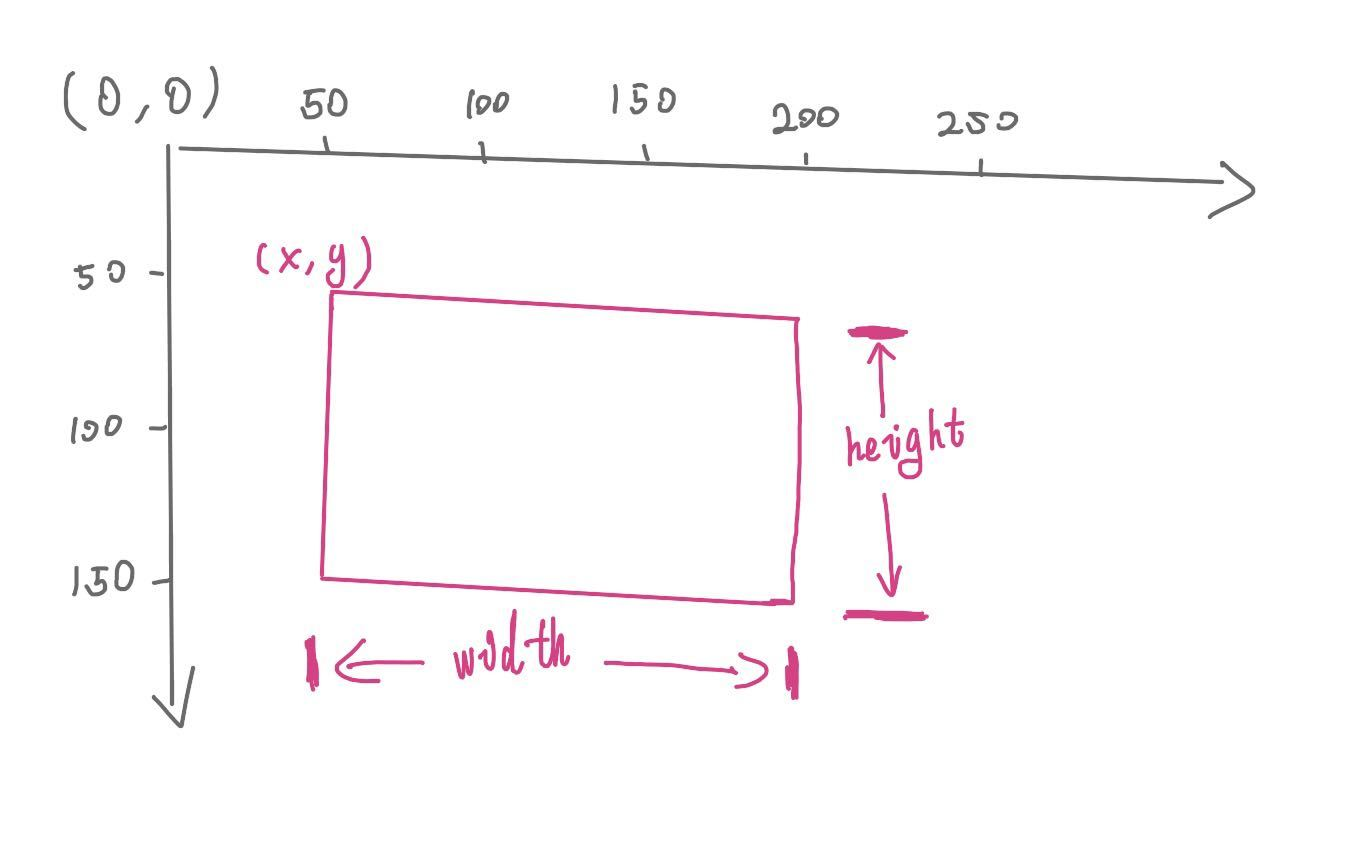 (0,0) 50 100 150 200 250
(x,y)
50
100
150
height
width